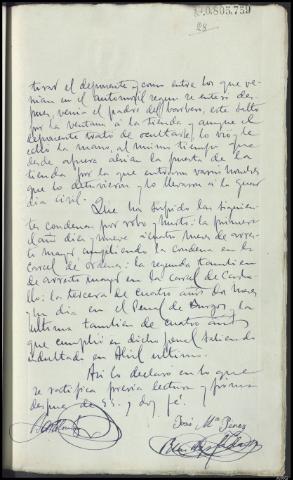 A0.803.759
28
tirar el deponente y como entre los que ve-
nian en el automovil segun se enteró des-
pues, venia el padre del barbero, este saltó
por la ventana a la tienda y aunque el
deponente trató de ocultarse, lo vio y le
echó la mano, al mismo tiempo que
desde afuera abrian la puerta de la
tienda por la que entraron varios hombres
que lo detuvieron y lo llevaron a la Guar
dia Civil.
Que ha sufrido las siguien-
tes condenas por robo y hurto: la primera
el año diez y nueve cuatro meses de arres-
to mayor cumpliendo la condena en la
carcel de Ordenes: la segunda tambien
de arresto mayor en la carcel de Carba-
llo: la tercera de cuatro años dos meses
y un dia en el Penal de Burgos, la
ultima tambien de cuatro años
que cumplió en dicho penal saliendo
indultado en Abril ultimo.
Asi lo declaró en lo que
se ratifica previa lectura y firma
despues de S.S. y doy fé.
José Mª